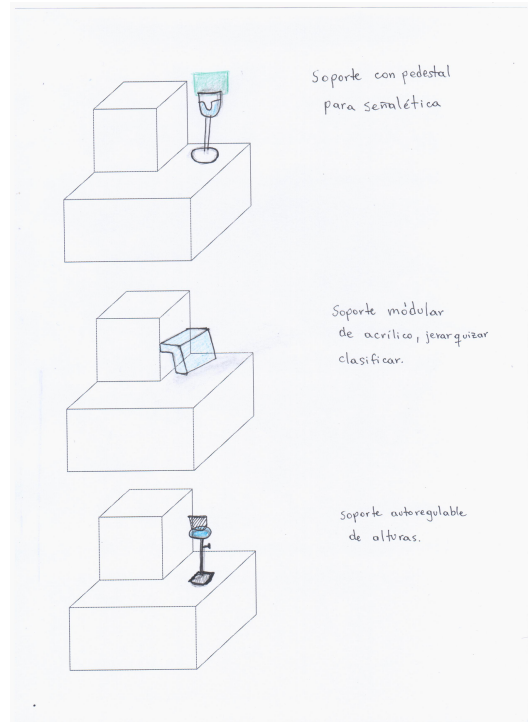 Soporte con pedestal
para señalética
Soporte módular
de acrílico, jerarquizar
clasificar.
soporte autoregulable
de alturas.